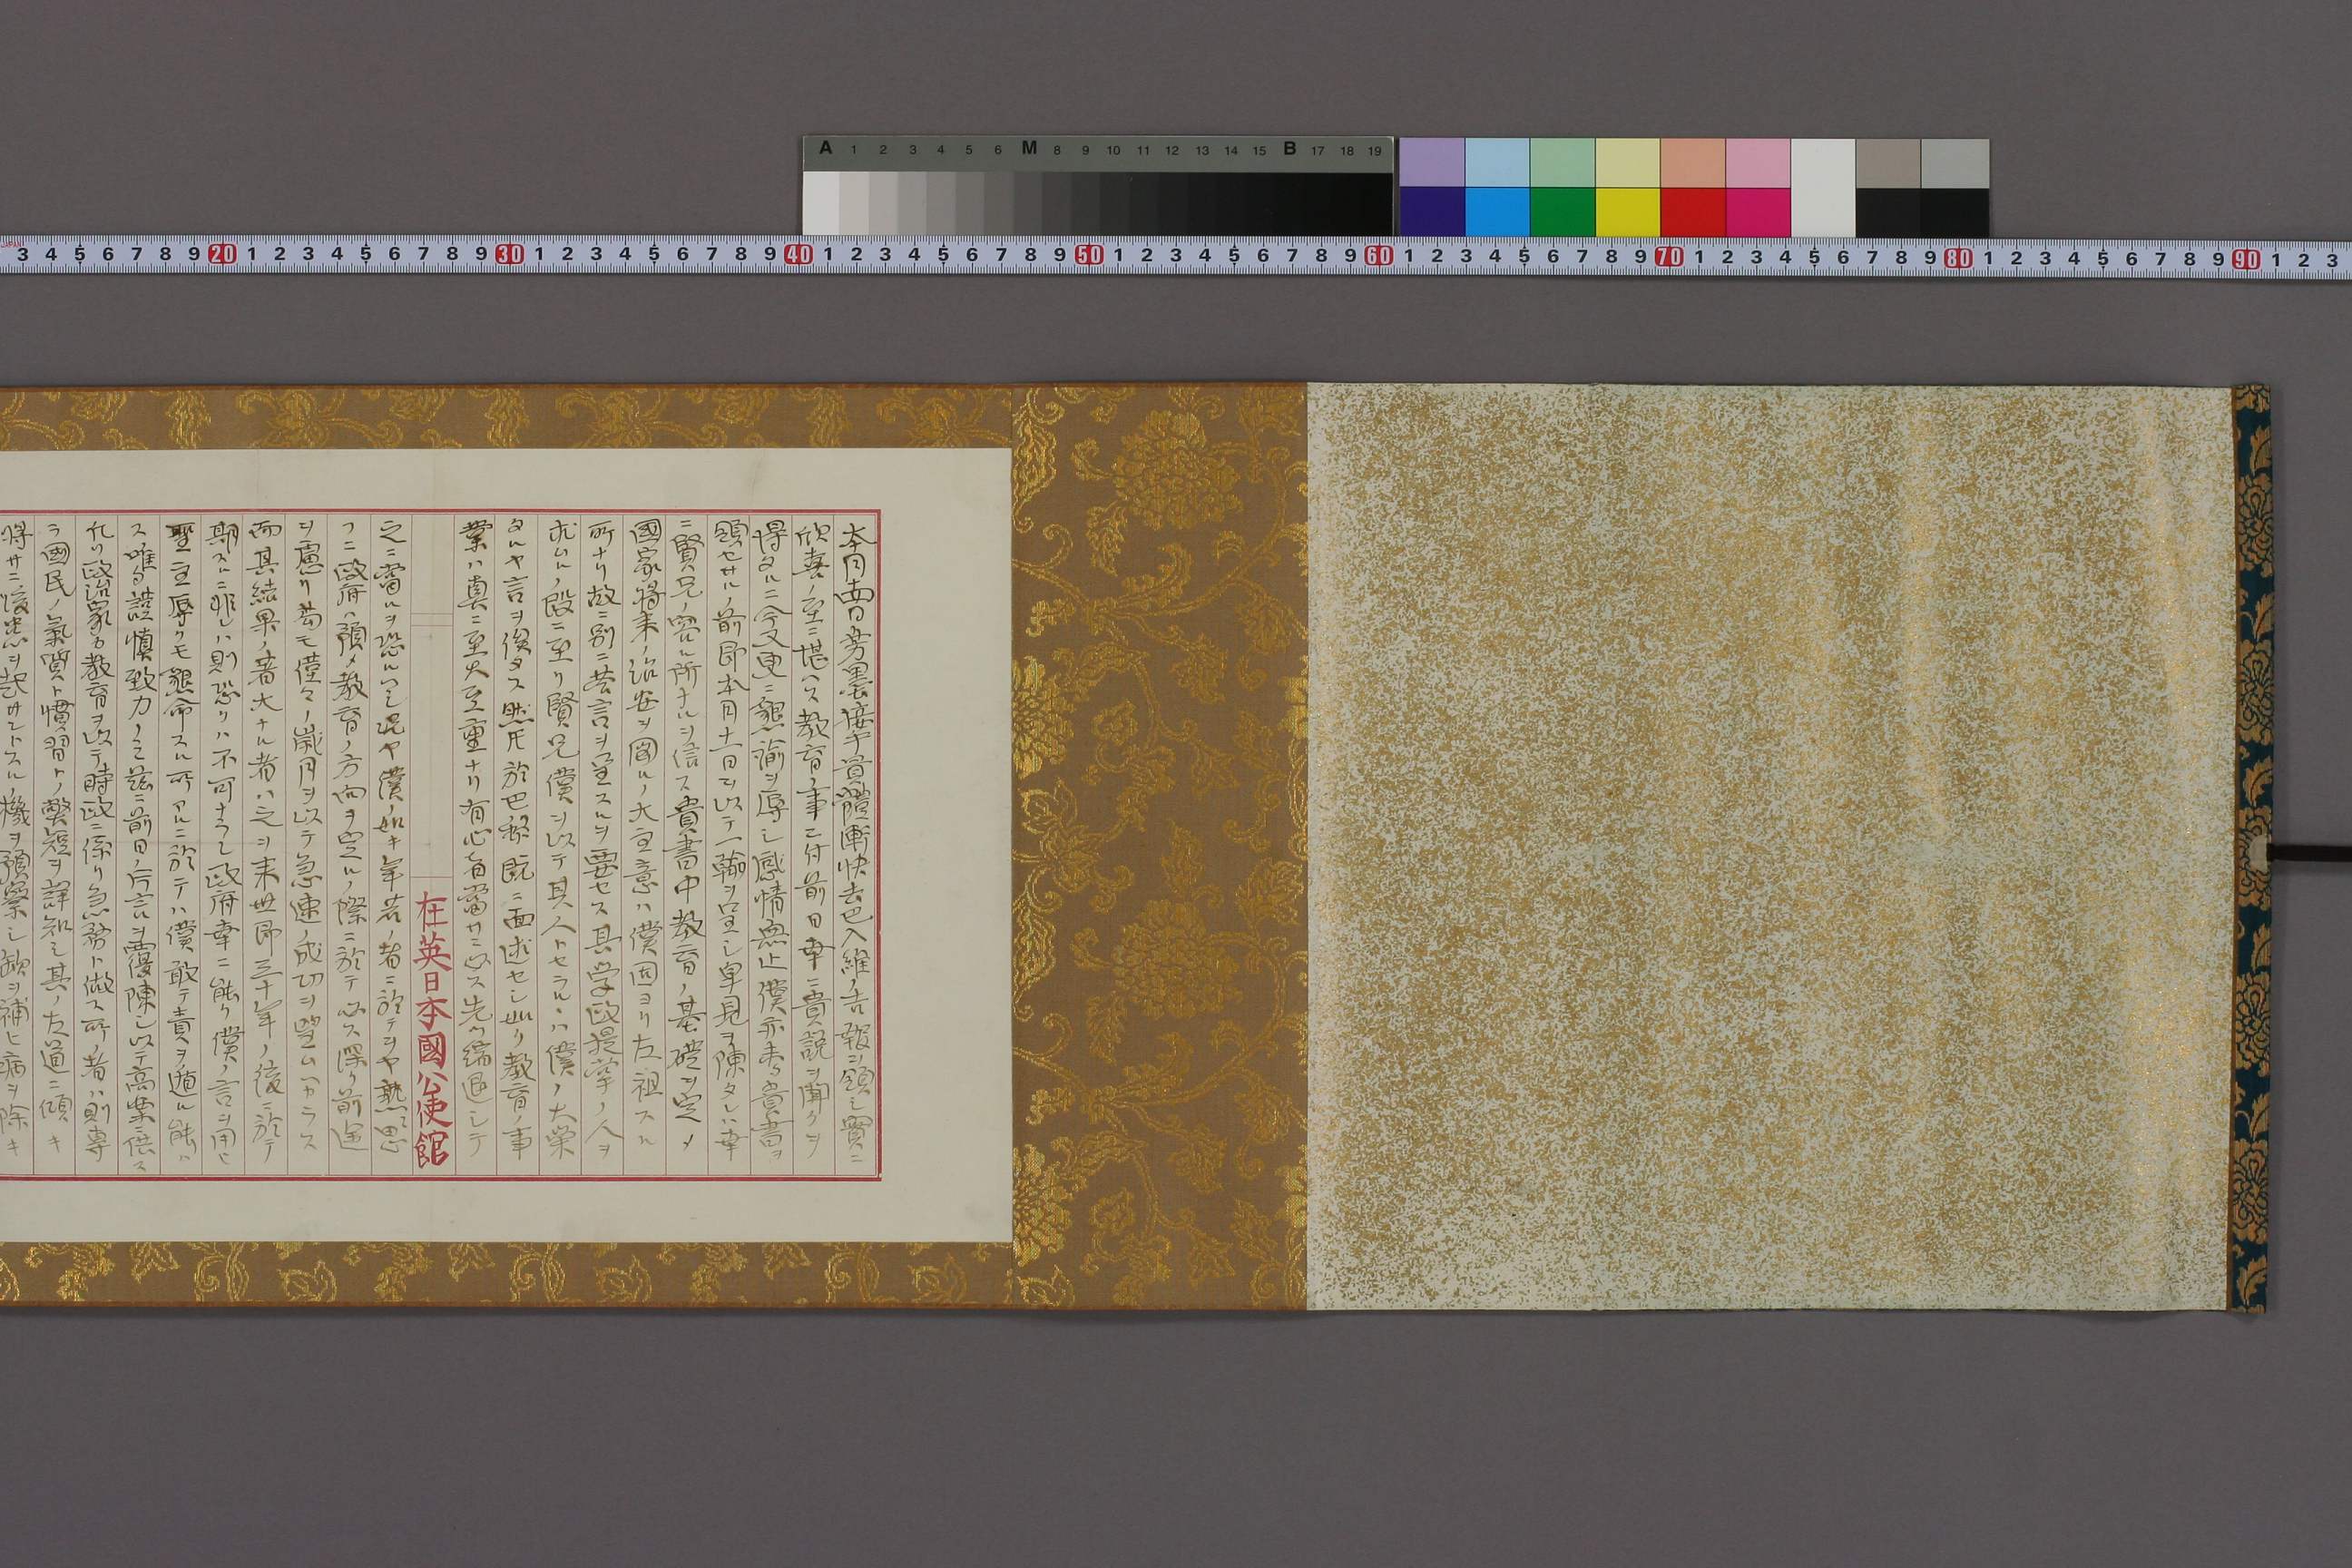 本月廿四日芳墨倭字首軆漸快去巴入維ノ吉報ヲ領シ實ニ
欣喜ノ至ニ堪ヘス教育ノ事ニ付前日幸ニ貴説ヲ聞クヲ
得タルニ今又更ニ懇諭ヲ辱シ感情無止僕亦未タ貴書ヲ
領セサル前即本月十一日ヲ以テ一翰ヲ呈シ卑見ヲ陳タルハ幸
ニ賢兄ノ容ル所ナルヲ信ス貴書中教育ノ基礎ヲ定メ
國家將来ノ治安ヲ圖ルノ大主意ハ僕固ヨリ左祖スル
所ナリ故ニ別ニ芸言ヲ呈スルヲ要セス其学政提掌ノ人ヲ
求ムルノ段ニ至リ賢兄僕ヲ以テ其人トセラルヽハ僕ノ大榮
タルヤ言ヲ俟タス然𪜈於巴利既ニ面述セシ如ク教育ノ事
業ハ真ニ至大至重ナリ有心者當サニ必ス先ツ縮退シテ
在英日本國公使館
之ニ當ルヲ恐ルヘシ況ヤ僕ノ如キ年若ノ者ニ於テヲヤ熟思
フニ政府ハ預メ教育ノ方向ヲ定ルノ際ニ於テ必ス深ク前途
ヲ慮リ苟モ僅々ノ歳月ヲ以テ急速ノ成功ヲ望ムヘカラス
而其結果ノ著大ナル者ハ之ヲ来世即三十年ノ後ニ於テ
期スルニ非レハ則恐クハ不可ナラン政府幸ニ能ク僕ノ言ヲ用ヒ
聖主辱クモ懇命スル所アルニ於テハ僕敢テ責ヲ遁ル能ハ
ス唯タ謹慎致力ノミ茲ニ前日ノ片言ヲ覆陳シ以テ高案ニ供ス
凡ソ政治家カ教育ヲ以テ時政ニ係リ急務ト做ス所ノ者ハ則專
ラ國民ノ氣質ト慣習トノ弊短ヲ詳知シ其ノ左道ニ傾キ
將サニ後患ヲ起サントスルノ機ヲ預察シ缺ヲ補ヒ病ヲ除キ
A 1 2 3 4 5 6 M 8 9 10 11 12 13 14 15 B 17 18 19
3 4 5 6 7 8 9 20 1 2 3 4 5 6 7 8 9 30 1 2 3 4 5 6 7 8 9 40 1 2 3 4 5 6 7 8 9 50 1 2 3 4 5 6 7 8 9 60 1 2 3 4 5 6 7 8 9 70 1 2 3 4 5 6 7 8 9 80 1 2 3 4 5 6 7 8 9 90 1 2 3